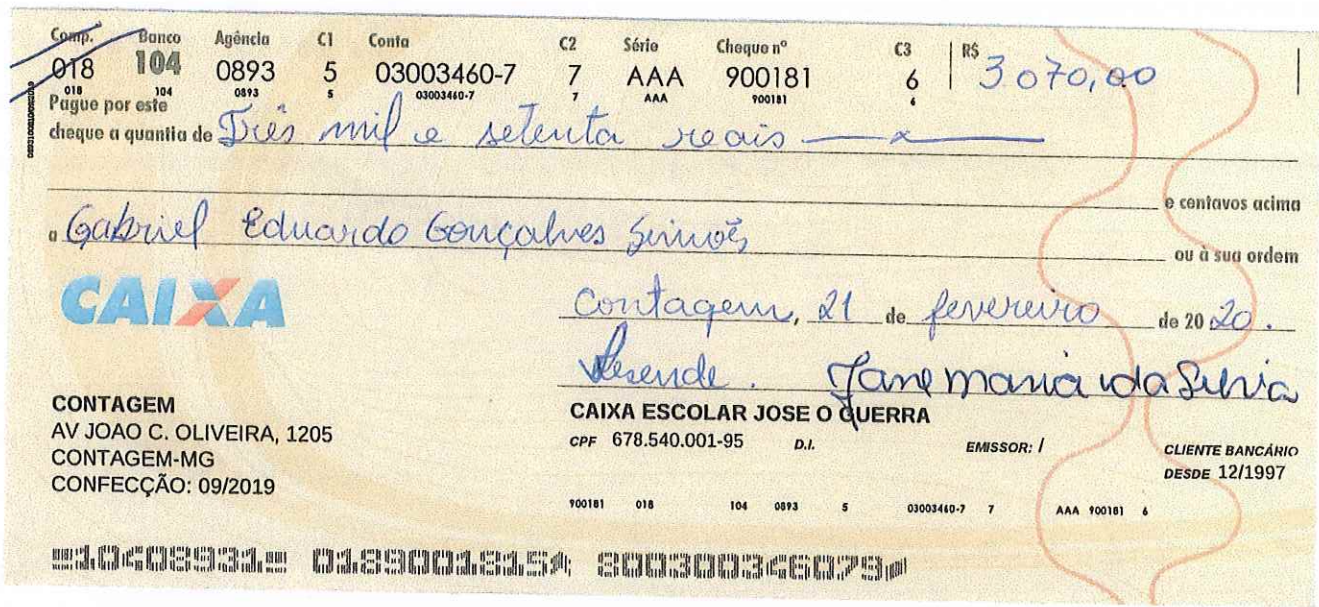 Comp. Banco Agência C1 Conta C2 Série Cheque nº C3 R$
018 104 0893 5 03003460-7 7 AAA 900181 6 3 070,00
018 104 0893 5 03003460-7 7 AAA 900181 6
Pague por este
cheque a quantia de Três mil e setenta reais
e centavos acima
a Gabriel Eduardo Gonçalves Simões
ou à sua ordem
CAIXA
Contagem, 21 de fevereiro de 20 20.
Resende. Jane Maria da Silvia
CONTAGEM
AV JOAO C. OLIVEIRA, 1205
CONTAGEM-MG
CONFECÇÃO: 09/2019
CAIXA ESCOLAR JOSE O GUERRA
CPF 678.540.001-95 D.I. EMISSOR: / CLIENTE BANCÁRIO
DESDE 12/1997
900181 018 104 0893 5 03003460-7 7 AAA 900181 6
10408931 0189001815 800300346079